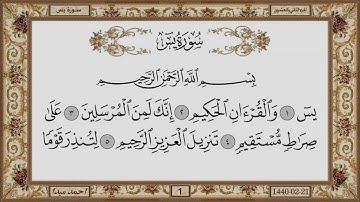 سورة يس
سُورَةُ يسٓ
بِسْمِ ٱللَّهِ ٱلرَّحْمَٰنِ ٱلرَّحِيمِ
يسٓ ١ وَٱلْقُرْءَانِ ٱلْحَكِيمِ ٢ إِنَّكَ لَمِنَ ٱلْمُرْسَلِينَ ٣ عَلَىٰ
صِرَٰطٍ مُّسْتَقِيمٍ ٤ تَنزِيلَ ٱلْعَزِيزِ ٱلرَّحِيمِ ٥ لِتُنذِرَ قَوْمًا
1
1440-02-21